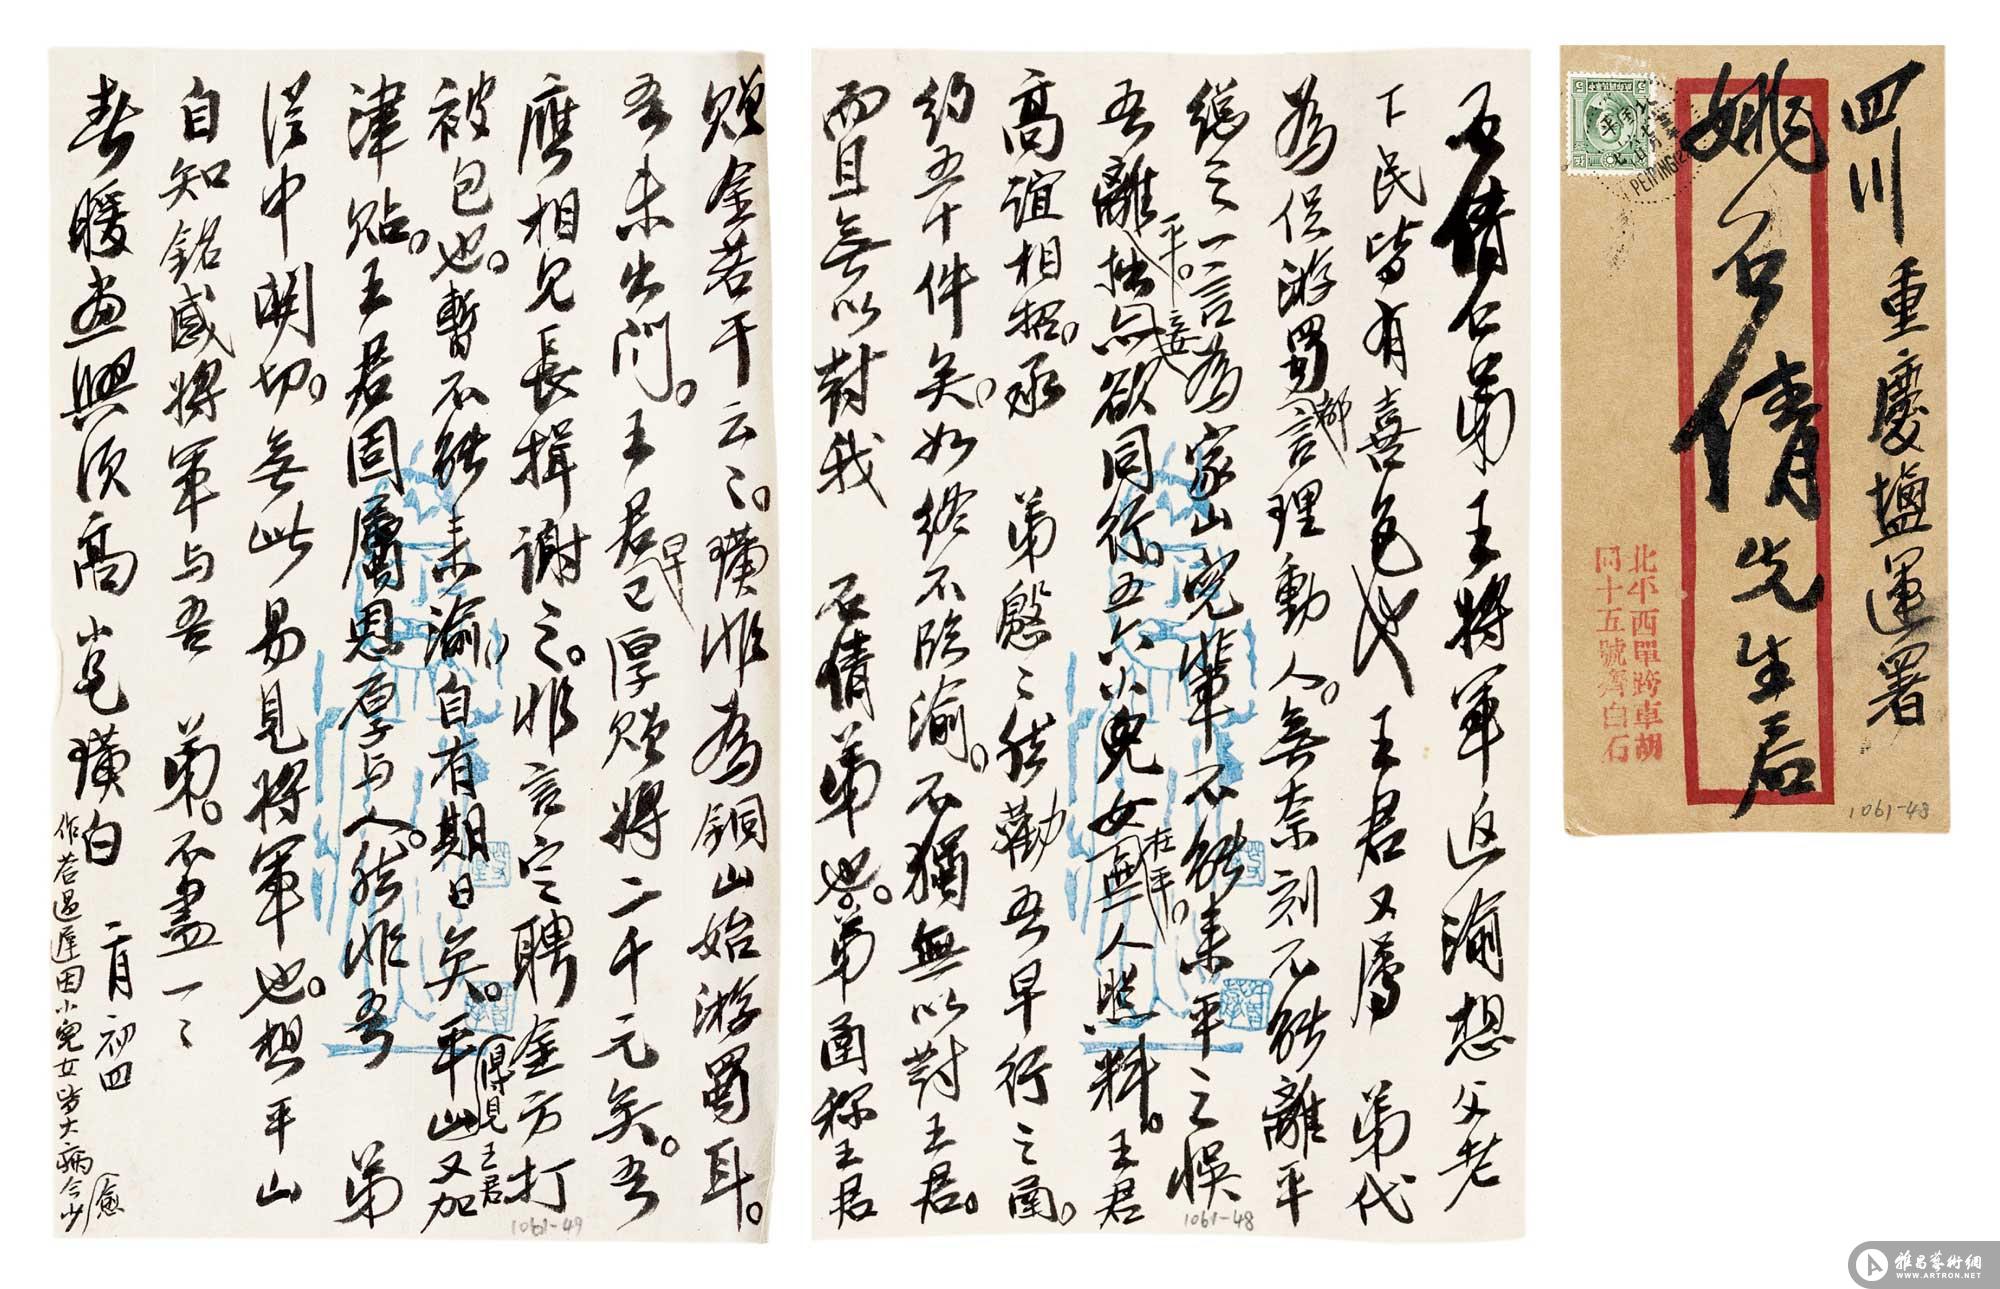 四川重慶塩運署
姚石倩先生啟
北平西單跨車胡
同十五號齊白石
PEIPING
1061-48
石倩仁弟王將軍返渝想父老
下民皆有喜色也王君又属弟代
為促游蜀都言理動人無奈刻不能離平
總之一言為家山兒輩不能來平之悮
吾離平拙妾与欲同行五六小兒女在平無人照料王君
高誼相招承弟慇〻然勸吾早行之函
約五十件矣如終不臨渝不獨無以對王君
而且無以對我石倩弟也弟函称王君
贈金若干云〻璜非為銅山始游蜀耳
吾未出門王君早已厚贈將二千元矣吾
應相見長揖謝之非言定聘金方打
被包也暫不能來渝自有期日矣平山得見王君又加
津貼王君固屬恩厚与人然非吾弟
從中關切無此易見將軍也想平山
自知銘感將軍与吾弟不盡一〻
春暖画興須高小兄璜白二月初四
作答過遲因小兒女皆大病今少愈
1061-48
1061-49
雅昌藝術網
WWW.ARTRON.NET